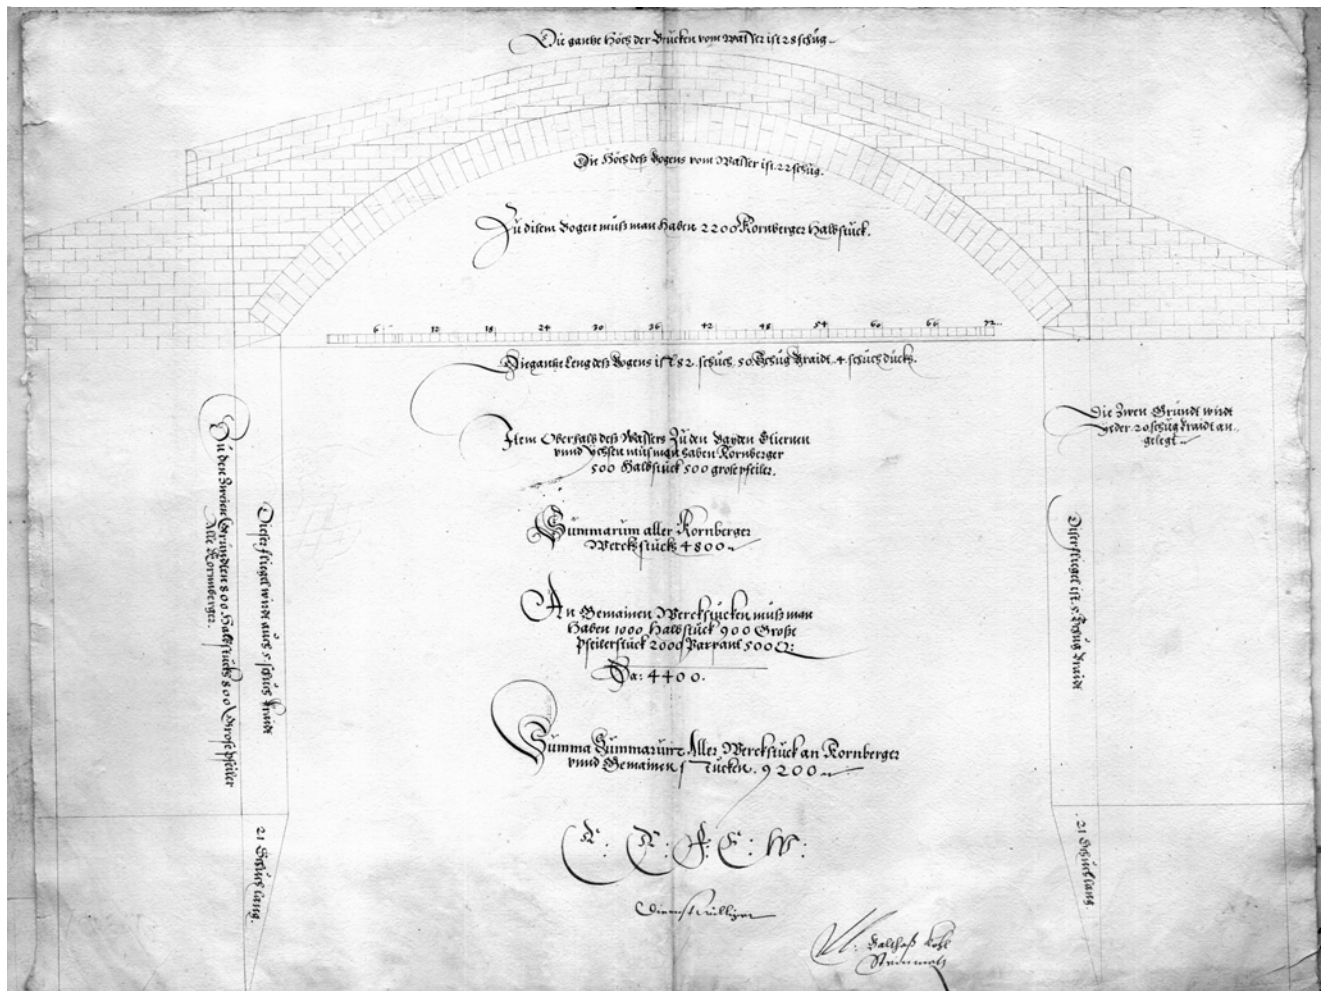 Die gantze Höch der Brucken vom Wasser ist 28 schůg.
Die Höch deß Bogens vom Wasser ist 22 schůg.
Zu disem Bogen muß man haben 2200 Kornberger Halbstuck.
6 12 18 24 30 36 42 48 54 60 66 72
Die gantze Leng deß Bogens ist 82 schuch 50 Schůg Braidt 4 schuch dück.
Item Oberhalb deß Wassers Zu den Bayden Stiernen
vnnd muß man haben Kornberger
500 Halbstuck 500 grose pfeiler.
Summarum aller Kornberger
Werckstuck 4800
An Gemainen Werckstucken muß man
haben 1000 Halbstuck 900 Große
Pfeilerstuck 2000 Parpant 500
Sa: 4400.
Summa Summarum Aller Werckstuck an Kornberger
vnnd Gemainen stucken. 9200
Zu den Zweien Gründten 800 Halbstuck 800 Grose pfeiler
Alle Kornberger.
Dieser fliegel wirdt auch 5 schuch Braidt
21 Schuch lang.
Die Zwen Gründt wirdt
yeder 20 schůg braidt an
gelegt
Diser fliegel ist 5 Schůg Braidt
21 Schuch lang.
E: E: F: E: W:
Dienstwilliger
M: Balthaß
Steinmetz